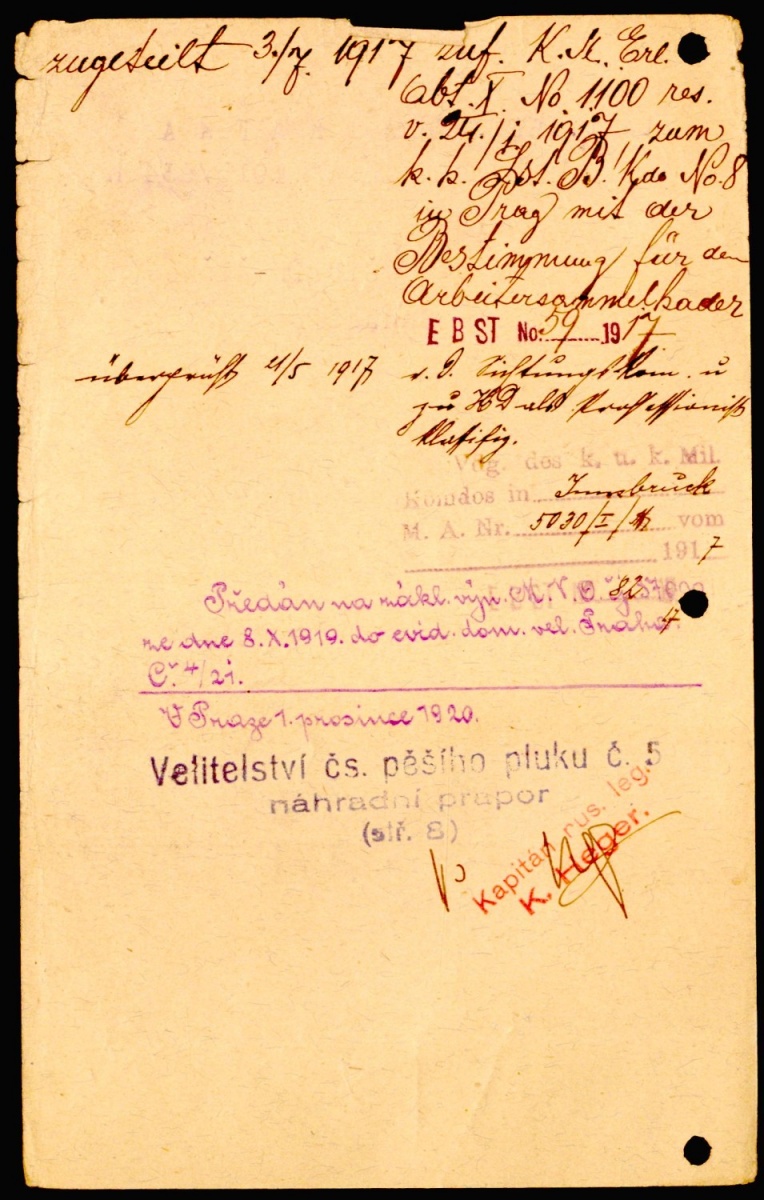 zugeteilt 3./7. 1917 zuf. K. M. Erl.
Abt. X. No 1100 res.
v. 24./ 1917, zum
k. k. Lst. B. Kdo No. 8
in Prag mit der
Bestimmung für den
Arbeitersammelkader
EBST No. 59 1917
überprüft 21/5 1917 v. d. Sichtungskom. u
zu HD als Professionist
klasifiz.
des k. u. k. Mil.
Komdos in Innsbruck
M. A. Nr. 5030/I/ vom
1917
Předán na zákl. výn. M. N. O. čj
ze dne 8. X. 1919. do evid. dom. vel. Praha
Č. 4/21.
V Praze 1. prosince 1920.
Velitelství čs. pěšího pluku č. 5
náhradní prapor
(stř. 8)
Kapitán rus. leg.
K. Heger.